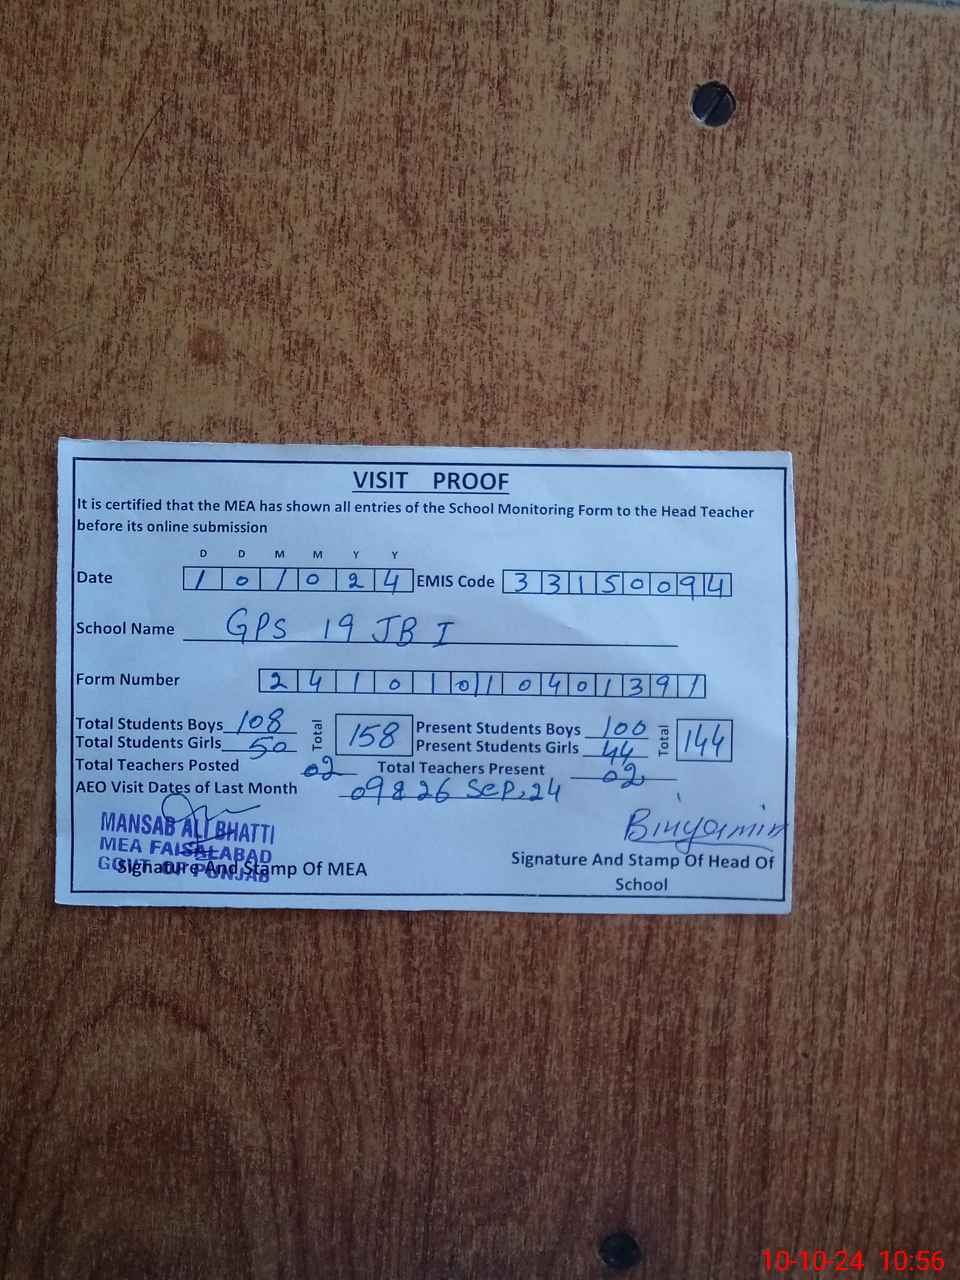 VISIT PROOF
It is certified that the MEA has shown all entries of the School Monitoring Form to the Head Teacher
before its online submission
D D M M Y Y
Date 1 0 1 0 2 4 EMIS Code 3 3 1 5 0 0 9 4
School Name GPS 19 JB I
Form Number 2 4 1 0 1 0 1 0 4 0 1 3 9 1
Total Students Boys 108 Total 158 Present Students Boys 100 Total 144
Total Students Girls 50 Present Students Girls 44
Total Teachers Posted 02 Total Teachers Present 02
AEO Visit Dates of Last Month 09 & 26 Sep, 24
MANSAB ALI BHATTI
MEA FAISALABAD
GOVT. OF PUNJAB
Signature And Stamp Of MEA
Binyamin
Signature And Stamp Of Head Of
School
10-10-24 10:56